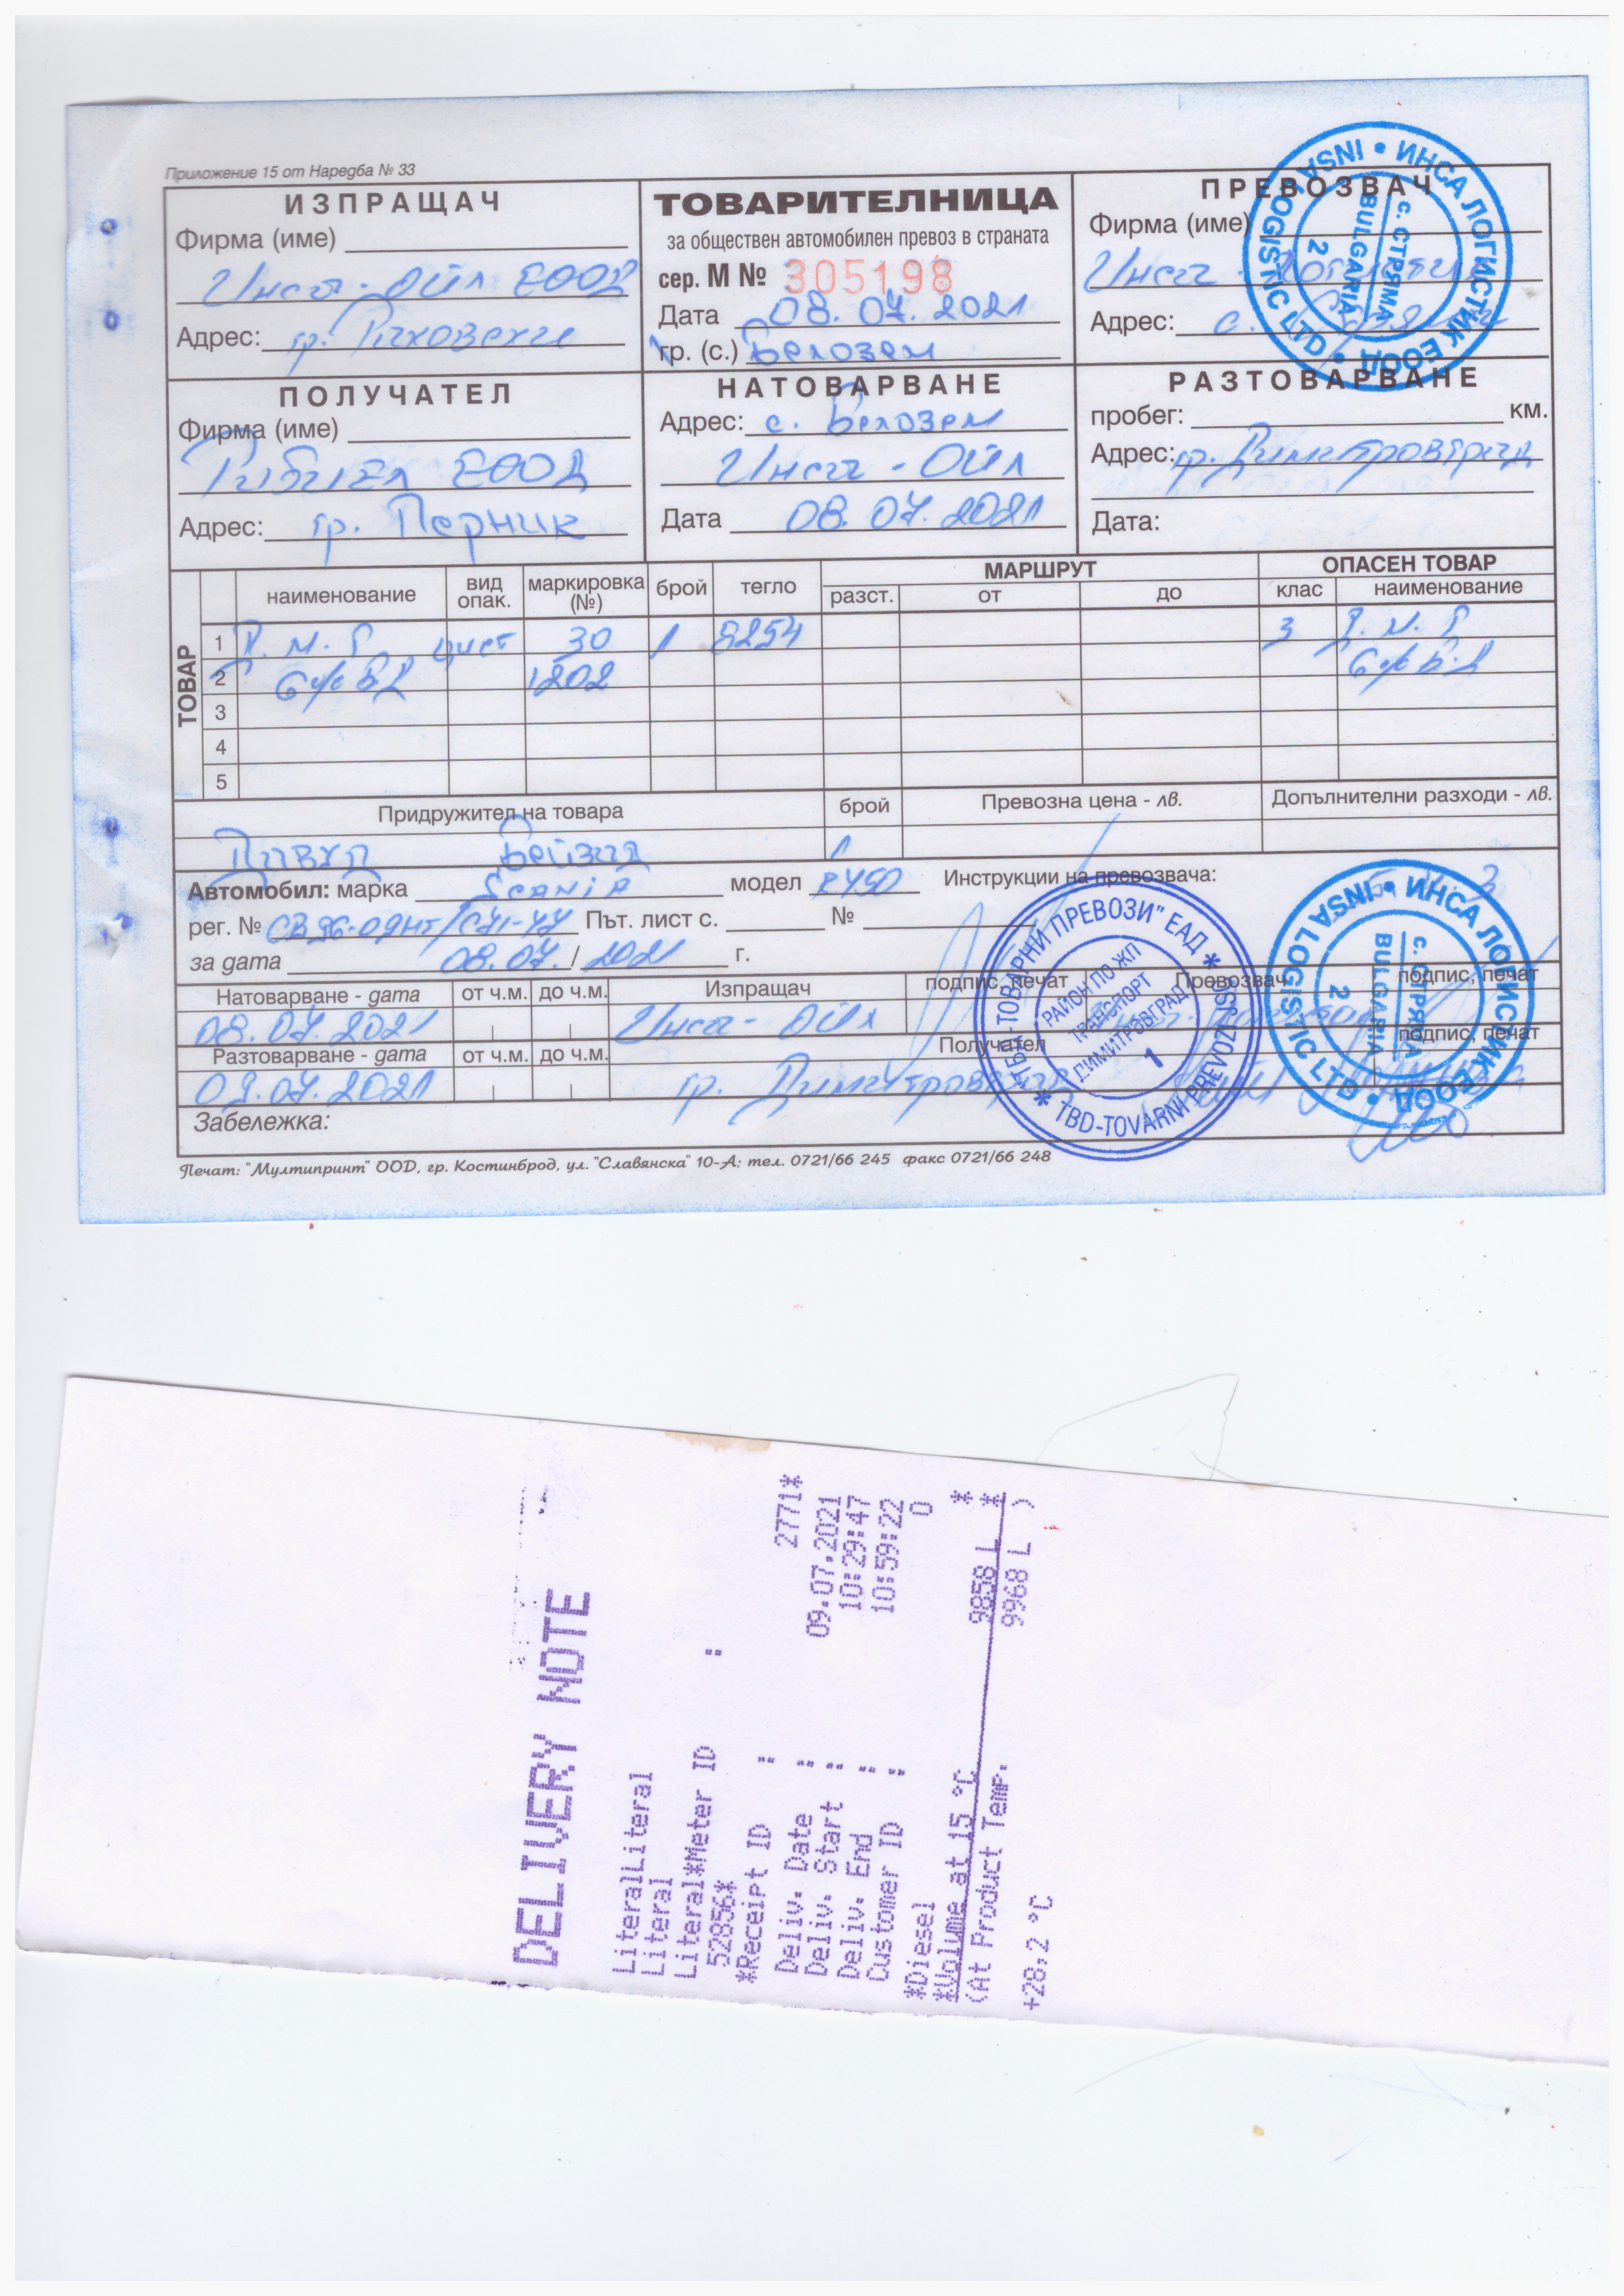 Приложение 15 от Наредба № 33
ИЗПРАЩАЧ
Фирма (име)
Инса-Ойл ЕООД
Адрес: гр. Раковски
ТОВАРИТЕЛНИЦА
за обществен автомобилен превоз в страната
сер. М № 305198
Дата 08.07.2021
гр. (с.) Белозем
ПРЕВОЗВАЧ
Фирма (име)
Инса
Адрес: с.
ИНСА ЛОГИСТИК ЕООД • INSA LOGISTIC LTD •
с. СТРЯМА
BULGARIA
2
ПОЛУЧАТЕЛ
Фирма (име)
ЕООД
Адрес: гр. Перник
НАТОВАРВАНЕ
Адрес: с. Белозем
Инса-Ойл
Дата 08.07.2021
РАЗТОВАРВАНЕ
пробег: км.
Адрес: гр. Димитровград
Дата:
ТОВАР
наименование вид опак. маркировка (№) брой тегло МАРШРУТ разст. от до ОПАСЕН ТОВАР клас наименование
1 Д.М.Г цист 30 1 8254 3 Д.М.Г
2 6% БД 1202 6% БД
3
4
5
Придружител на товара брой Превозна цена - лв. Допълнителни разходи - лв.
1
Автомобил: марка Scania модел R490 Инструкции на превозвача:
рег. № Път. лист с. №
за дата 08.07./2021 г.
Натоварване - дата от ч.м. до ч.м. Изпращач подпис, печат Превозвач подпис, печат
08.07.2021 Инса-Ойл
Разтоварване - дата от ч.м. до ч.м. Получател подпис, печат
09.07.2021 гр. Димитровград
"ТБД-ТОВАРНИ ПРЕВОЗИ" ЕАД * TBD-TOVARNI PREVOZI JSC *
РАЙОН ПО ЖП
ТРАНСПОРТ
ДИМИТРОВГРАД
1
ИНСА ЛОГИСТИК ЕООД • INSA LOGISTIC LTD •
с. СТРЯМА
BULGARIA
2
Забележка:
Печат: "Мултипринт" ООД, гр. Костинброд, ул. "Славянска" 10-А; тел. 0721/66 245 факс 0721/66 248
DELIVERY NOTE
LiteralLiteral
Literal
Literal*Meter ID :
52856*
*Receipt ID : 2771*
Deliv. Date : 09.07.2021
Deliv. Start : 10:29:47
Deliv. End : 10:59:22
Customer ID : 0
*Diesel *
*Volume at 15 °C 9858 L *
(At Product Temp. 9968 L )
+28,2 °C